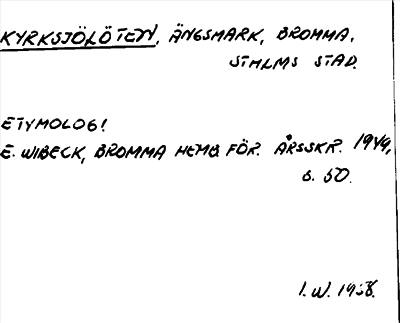 KYRKSJÖLÖTEN, ÄNGSMARK, BROMMA,
STHLMS STAD.
ETYMOLOGI
E. WIBECK, BROMMA HEMB. FÖR. ÅRSSKR. 1949,
S. 50.
I.W. 1958.